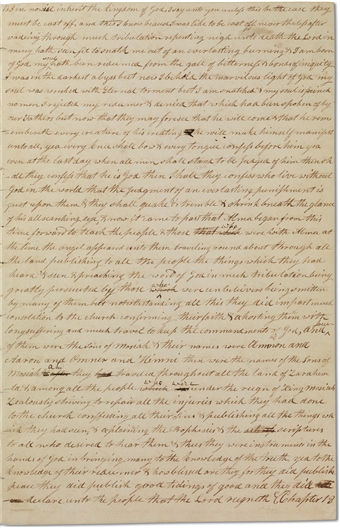 wise inherit the kingdom of God I say unto you unless this be the case they
must be cast off and this I know because I was like to be cast off nevertheless after
wadeing through much tribulation repenting nigh unto death the Lord in
mercy hath seen fit to snatch me out of an everlasting burning & I am born
of God my soul hath been redeemed from the gall of bitterness & bonds of iniquity
I was in the darkest abyss but now I behold the marvelous light of God my
soul was racked with Eternal torment but I am snatched & my soul is pained
no more I rejected my redeemer & denied that which had been spoken of by
our Fathers but now that they may foresee that he will come & that he rem
embereth every creature of his creating he will make himself manifest
unto all yea every knee shall bow & every tongue confess before him yea
even at the last day when all men shall stand to be judged of him then sh
all they confess that he is God then shall they confess who live without
God in the world that the judgment of an everlasting punishment is
just upon them & they shall quake & tremble & shrink beneath the glance
of his all searching eye & now it came to pass that Alma began from this
time forward to teach the people & those who were with Alma at
the time the angel appeared unto them traveling round about through all
the land publishing to all the people the things which they had
heard & seen & preaching the word of God in much tribulation being
greatly persecuted by those who were unbelievers being smitten
by many of them but notwithstanding all this they did impart much
consolation to the church confirming their faith & exhorting them with
long suffering and much travel to keep the commandments of God and four
of them were the Sons of Mosiah & their names were Ammon and
Aaron and Omner and Himni these were the names of the Sons of
Mosiah & they traveled throughout all the land of Zarahem
la & among all the people who were under the reign of King Mosiah
Zealously striving to repair all the injuries which they had done
to the church confessing all their sins & publishing all the things wh
ich they had seen & explaining the Prophesies & the scriptures
to all who desired to hear them & thus they were instruments in the
hands of God in bringing many to the knowledge of the truth yea to the
knowledge of their redeemer & how blessed are they for they did publish
peace they did publish good tidings of good and they did
declare unto the people that the Lord reigneth & Chapter 13